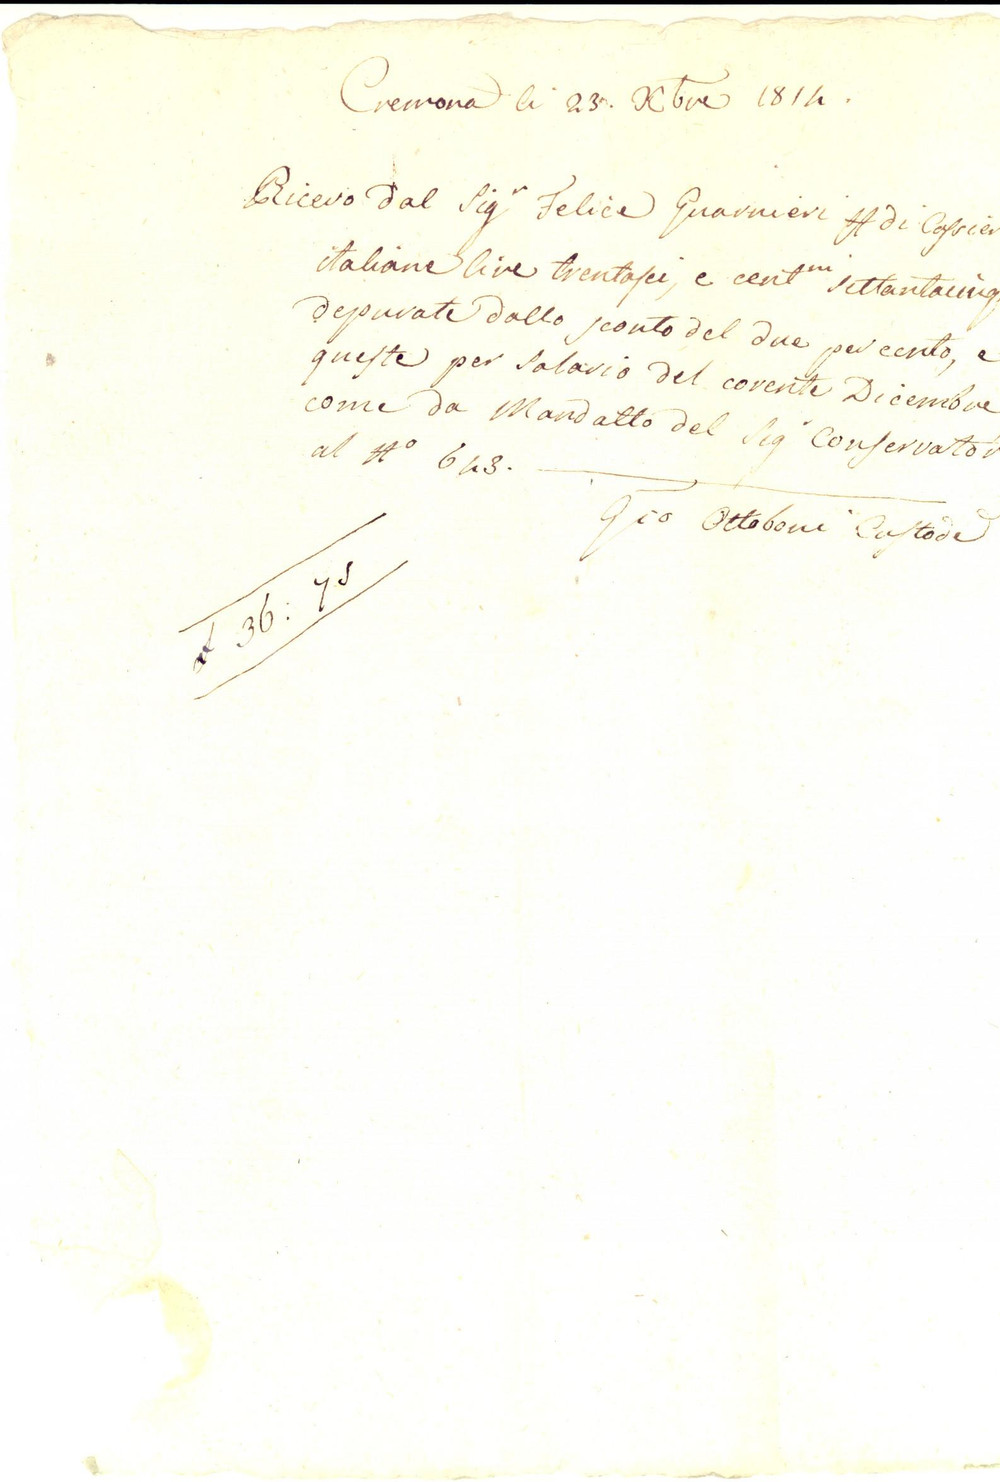 Cremona li 23. Xbre 1814.
Ricevo dal Sigr Felice Guarnieri ff di Cassier
italiane lire trentasei, e centmi settantacinq
depurate dallo sconto del due per cento, e
queste per salario del corente Dicembre
come da Mandatto del Sigr Conservator
al No 643.
Gio Ottoboni Custode
£ 36: 75